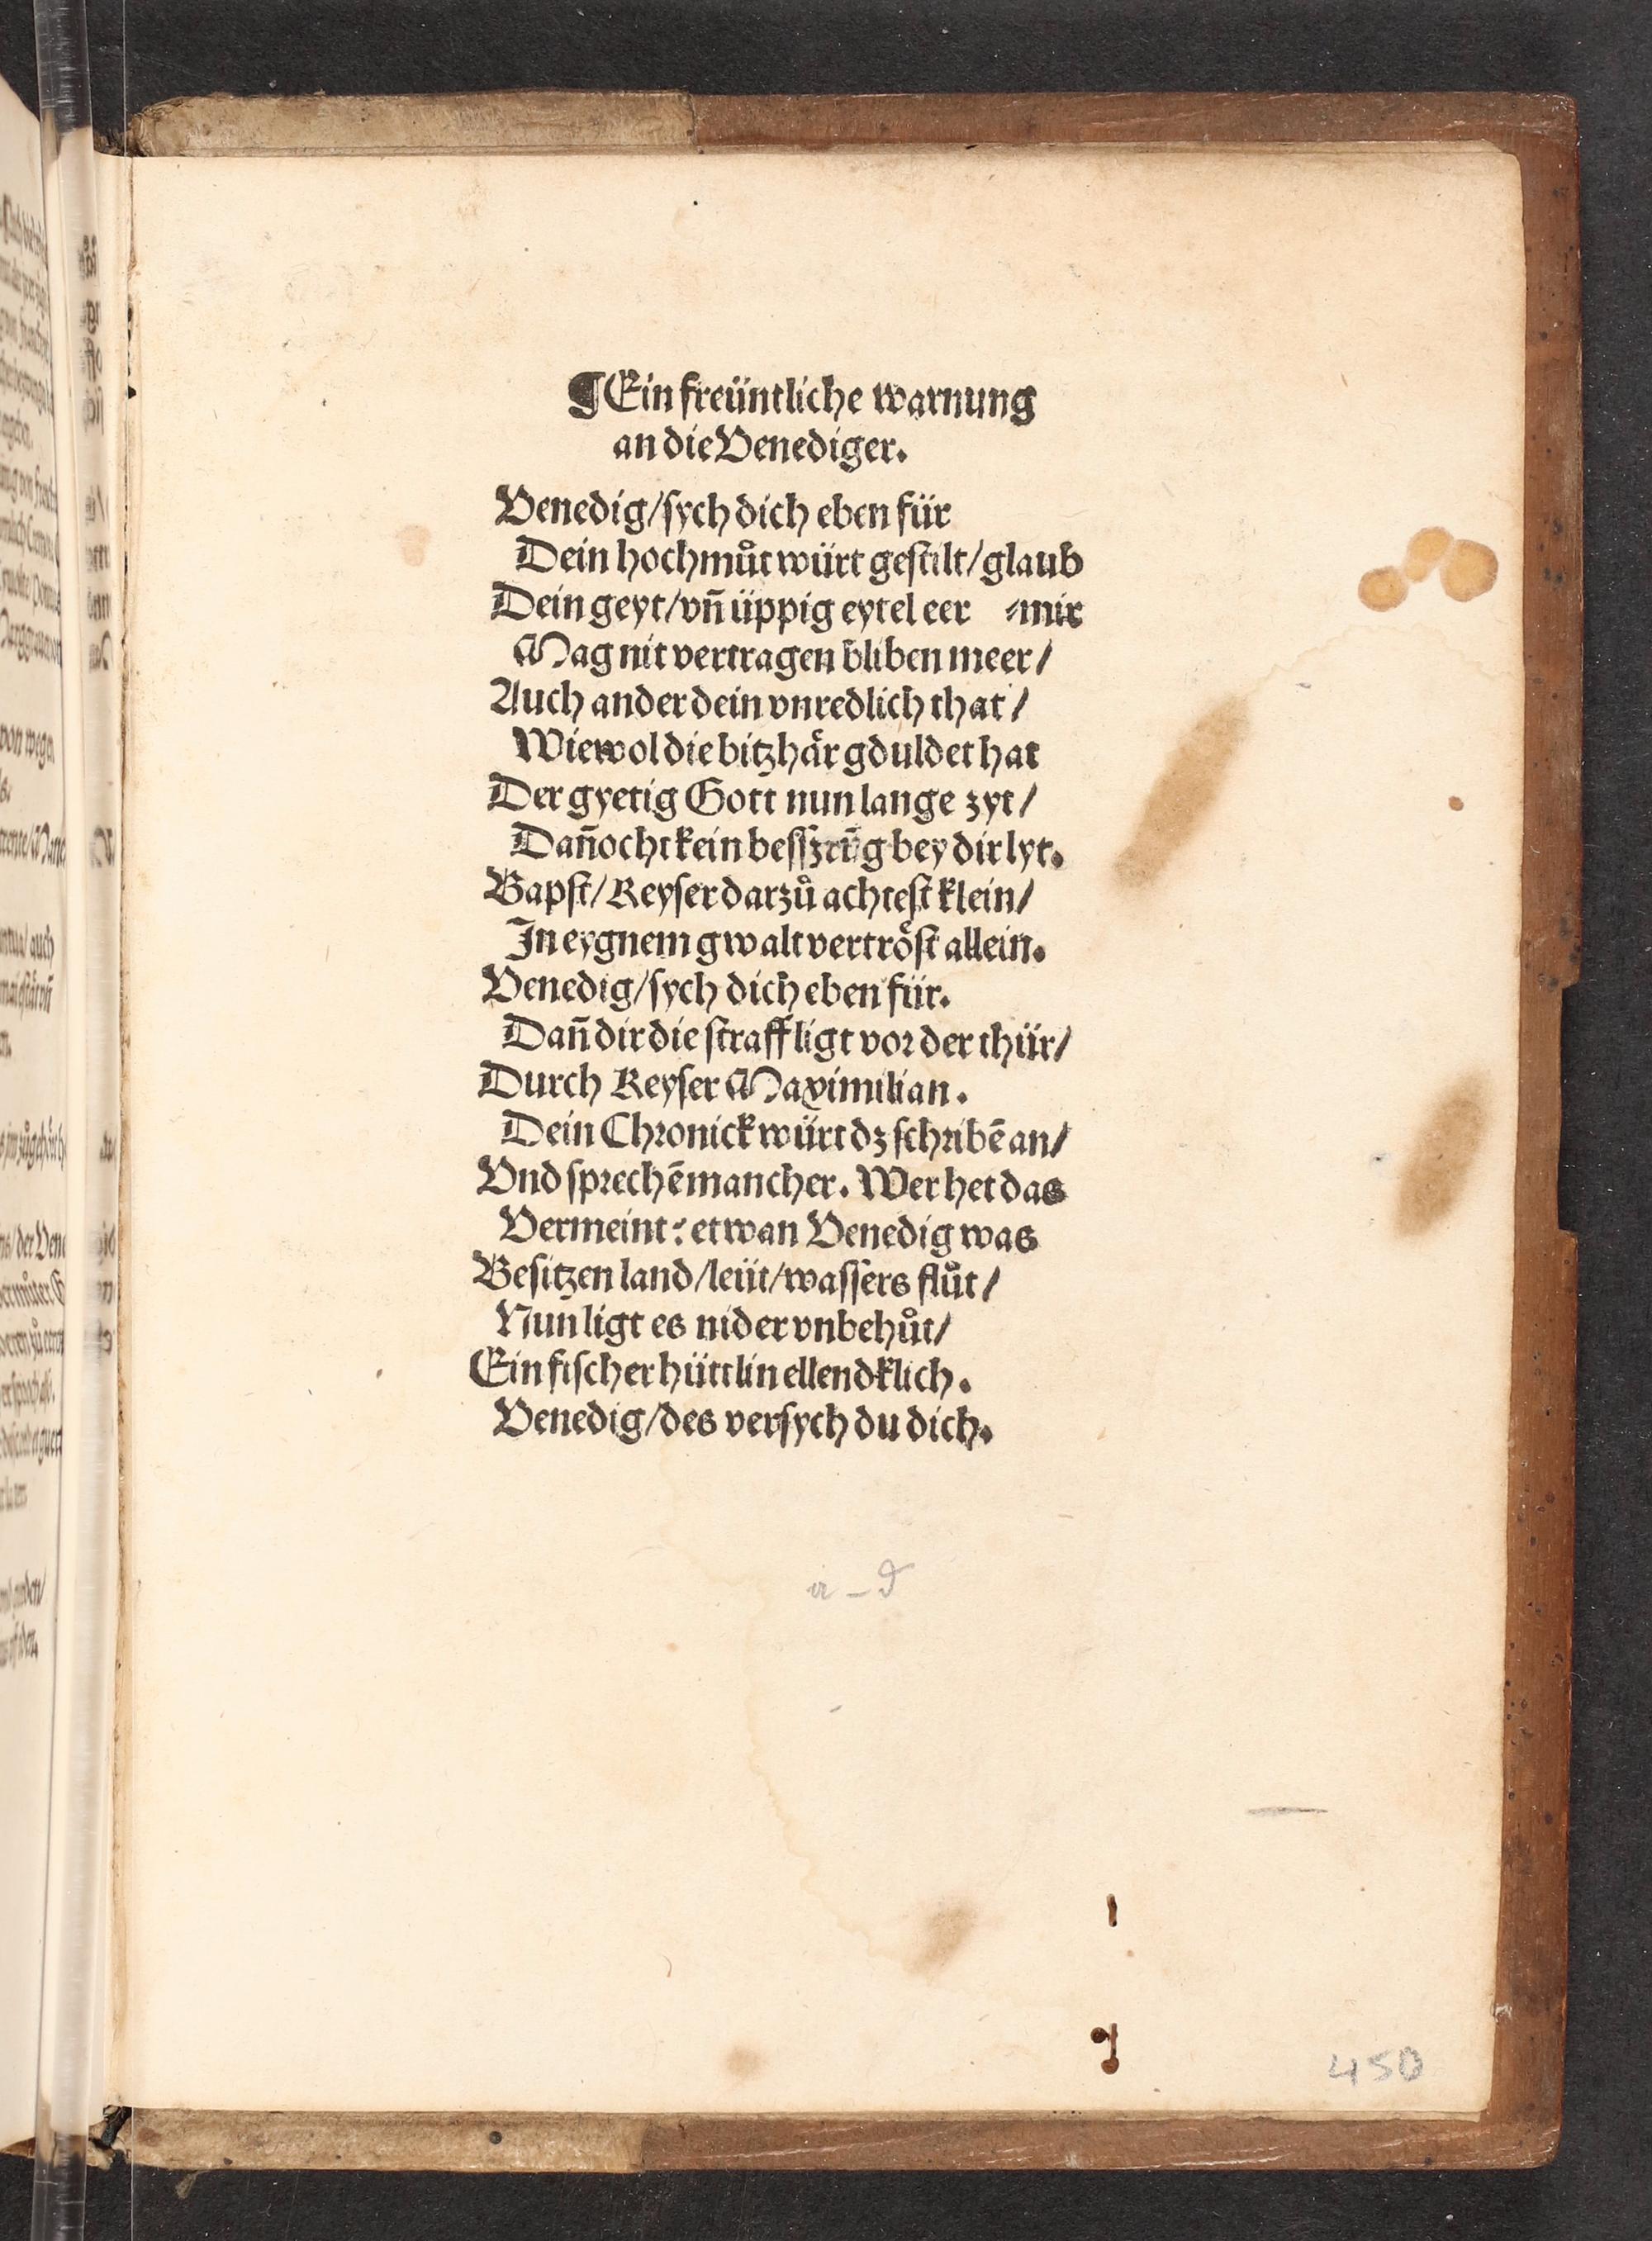 ¶Ein freüntliche warnung
an die Venediger.
Venedig/sych dich eben für
Dein hochmůt würt gestilt/glaub
Dein geyt/vñ üppig eytel eer ⸗mir
Mag nit vertragen bliben meer/
Auch ander dein vnredlich that/
Wiewol die bitzhär gduldet hat
Der gyetig Gott nun lange zyt/
Dañocht kein bey dir lyt.
Bapst/Keyser darzů achtest klein/
In eygnem gwalt vertröst allein.
Venedig/sych dich eben für.
Dañ dir die straff ligt vor der thür/
Durch Keyser Maximilian.
Dein Chronick würt dz schribē an/
Vnd sprechē mancher. Wer het das
Vermeint: etwan Venedig was
Besitzen land/leüt/wassers flůt/
Nun ligt es nider vnbehůt/
Ein fischer hüttlin ellendklich.
Venedig/des versych du dich.
a-d
450